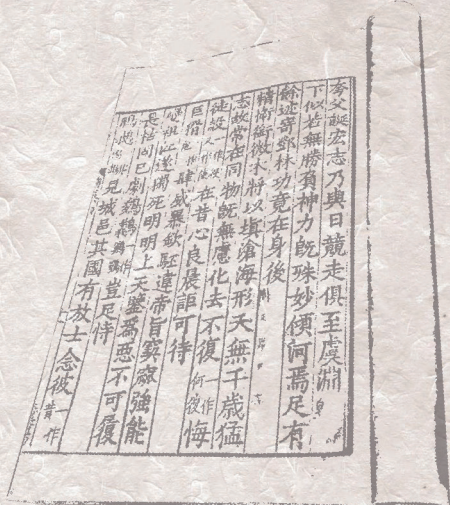 夸父誕宏志乃與日競走俱至虞淵
下似若無勝負神力既殊妙傾河焉足有
餘迹寄鄧林功竟在身後
精衛銜微木將以填滄海形天無千歲猛
志故常在同物既無慮化去不復一作何復悔
徒設在昔心良晨詎可待
肆威暴欽駓違帝旨窫窳強能
祖江遂獨死明明上天鑒為惡不可履
長枯固已劇鵕鶚豈足恃
見城邑其國有放士念彼一作